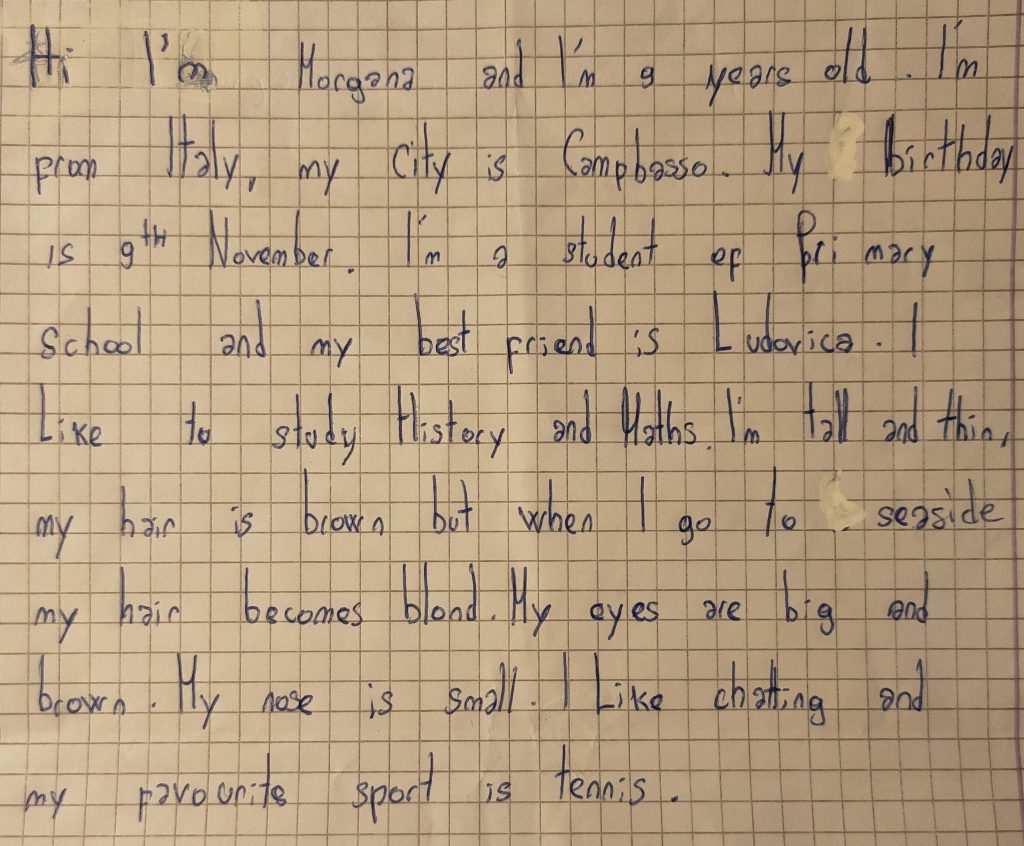 Hi I'm Morgana and I'm 9 years old. I'm
from Italy, my City is Campbasso. My birthday
is 9th November. I'm a student of Primary
School and my best friend is Ludovica. I
Like to study History and Maths. I'm tall and thin,
my hair is brown but when I go to seaside
my hair becomes blond. My eyes are big and
brown. My nose is small. I Like chatting and
my favourite sport is tennis.